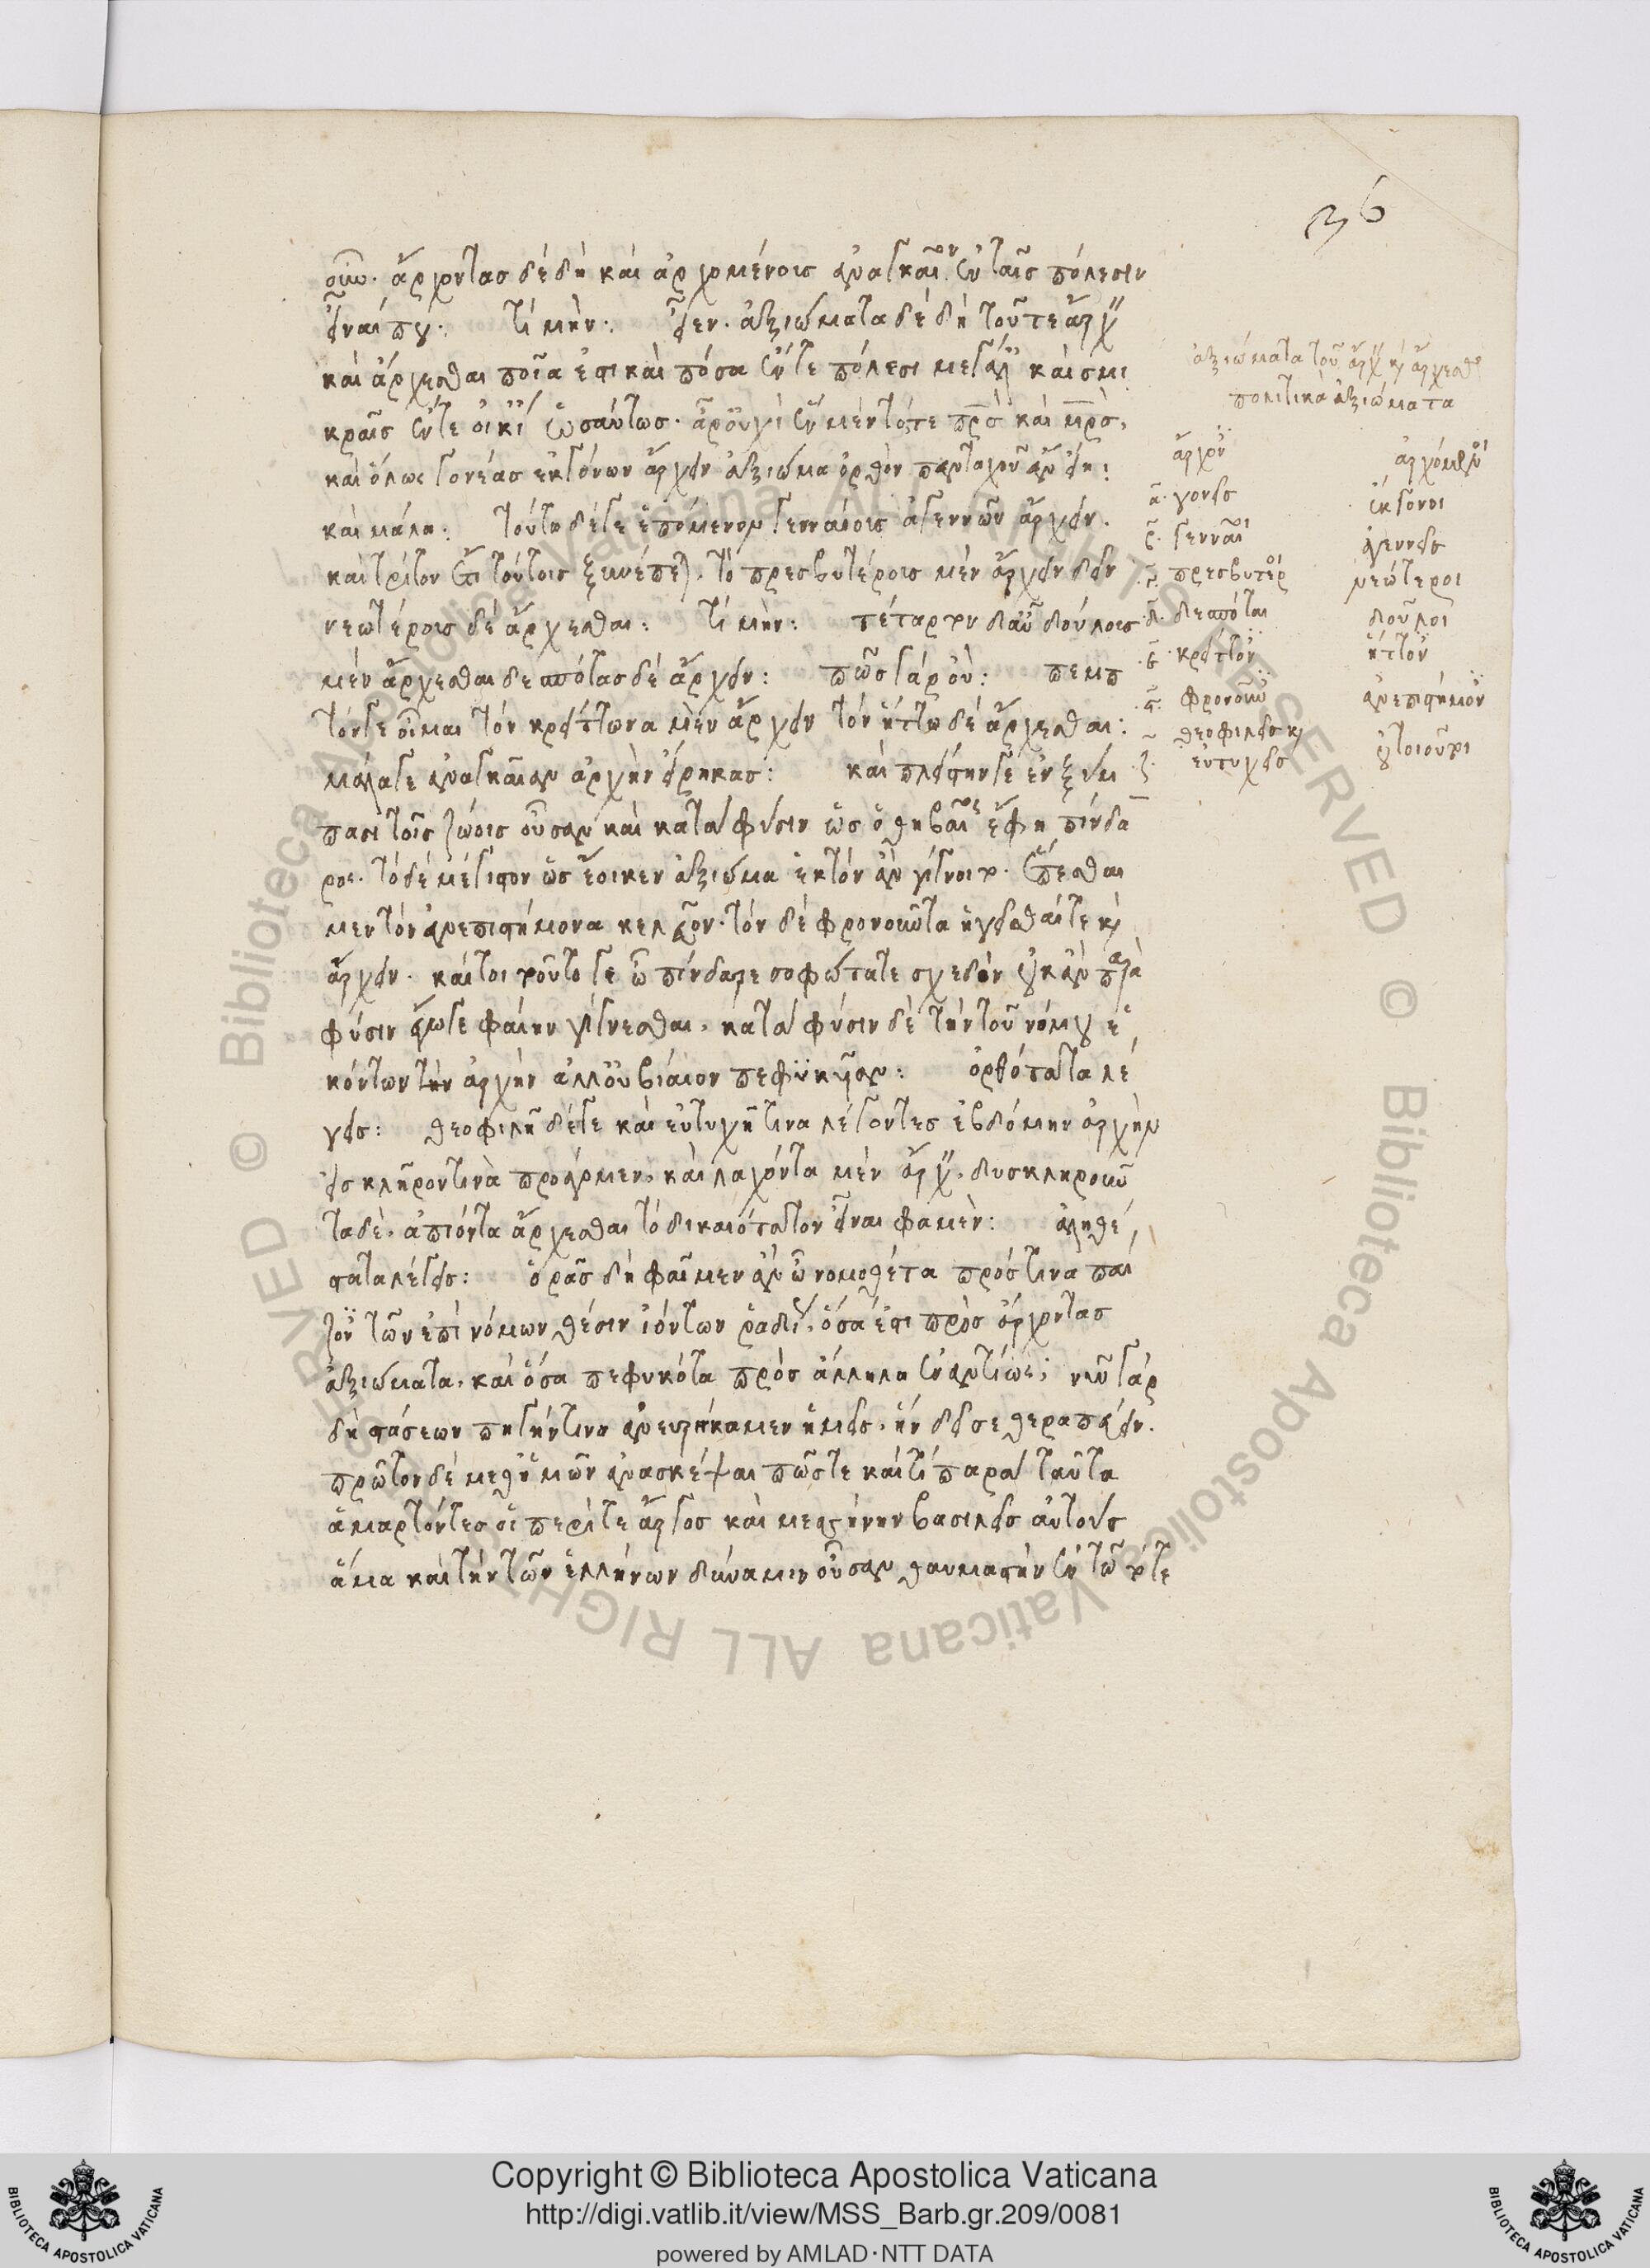 36
οὖν. ἄρχοντας δὲ δὴ καὶ ἀρχομένους ἀναγκαῖον ἐν ταῖς πόλεσιν
εἶναί που: τί μήν: εἶεν. ἀξιώματα δὲ δὴ τοῦ τε ἄρχειν
καὶ ἄρχεσθαι ποῖα ἐστι καὶ πόσα ἔν τε πόλεσι μεγάλαις καὶ σμι
κραῖς ἔν τε οἰκίαις ὡσαύτως. ἆρ' οὐχὶ ἓν μὲν τό τε πρς καὶ μρς,
καὶ ὅλως γονέας ἐκγόνων ἄρχειν ἀξίωμα ὀρθὸν πανταχοῦ ἂν εἴη:
καὶ μάλα: τούτῳ δέ γε ἑπόμενον γενναίους ἀγεννῶν ἄρχειν.
καὶ τρίτον ἔτι τούτοις ξυνέπεται, τὸ πρεσβυτέρους μὲν ἄρχειν δεῖν
νεωτέρους δὲ ἄρχεσθαι: τί μήν: τέταρτον δ' αὖ δούλους
μὲν ἄρχεσθαι δεσπότας δὲ ἄρχειν: πῶς γὰρ οὔ: πέμπ
τόν γε οἶμαι τὸν κρείττονα μὲν ἄρχειν τὸν ἥττω δὲ ἄρχεσθαι:
μάλα γε ἀναγκαῖον ἀρχὴν εἴρηκας: καὶ πλείστην γε ἐν ξύμ
πασι τοῖς ζώοις οὖσαν καὶ κατὰ φύσιν ὡς ὁ θηβαῖος ἔφη πίνδα
ρος. τὸ δὲ μέγιστον ὡς ἔοικεν ἀξίωμα ἕκτον ἂν γίγνοιτο. ἕπεσθαι
μεν τὸν ἀνεπιστήμονα κελεῦον. τὸν δὲ φρονοῦντα ἡγεῖσθαί τε καὶ
ἄρχειν. καίτοι τοῦτό γε ὦ πίνδαρε σοφώτατε σχεδὸν οὐκ ἂν παρὰ
φύσιν ἔγωγε φαίην γίγνεσθαι, κατὰ φύσιν δὲ τὴν τοῦ νόμου ἑ
κόντων τὴν ἀρχὴν ἀλλ' οὐ βίαιον πεφυκυῖαν: ὀρθότατα λέ
γεις: θεοφιλῆ δέ γε καὶ εὐτυχῆ τινα λέγοντες ἑβδόμην ἀρχὴν
εἰς κλῆρόν τινὰ προάγομεν, καὶ λαχόντα μὲν ἄρχειν, δυσκληροῦν
τα δὲ, ἀπιόντα ἄρχεσθαι τὸ δικαιότατον εἶναι φαμέν: ἀληθέ
στατα λέγεις: ὁρᾷς δὴ φαῖμεν ἂν ὦ νομοθέτα πρός τινα παί
ζοντες τῶν ἐπὶ νόμων θέσιν ἰόντων ῥᾳδίως, ὅσα ἐστι πρὸς ἄρχοντας
ἀξιώματα, καὶ ὅσα πεφυκότα πρὸς ἄλληλα ἐναντίως; νῦν γὰρ
δὴ στάσεων πηγήν τινα ἀνευρήκαμεν ἡμεῖς, ἣν δεῖ σε θεραπεύειν.
πρῶτον δὲ μεθ' ἡμῶν ἀνασκέψαι πῶς τε καὶ τί παρὰ ταῦτα
ἁμαρτόντες οἱ περί τε ἄργος καὶ μεσσήνην βασιλεῖς αὑτοὺς
ἅμα καὶ τὴν τῶν ἑλλήνων δύναμιν οὖσαν θαυμαστὴν ἐν τῷ τότε
ἀξιώματα τοῦ ἄρχειν καὶ ἄρχεσθαι
πολιτικὰ ἀξιώματα
ἄρχοντες ἀρχόμενοι
α. γονεῖς ἔκγονοι
β. γενναῖοι ἀγεννεῖς
γ. πρεσβύτεροι νεώτεροι
δ. δεσπόται δοῦλοι
ε. κρείττονες ἥττονες
ϛ. φρονοῦντες ἀνεπιστήμονες
ζ. θεοφιλεῖς καὶ
εὐτυχεῖς οὐ τοιοῦτοι
Copyright © Biblioteca Apostolica Vaticana
http://digi.vatlib.it/view/MSS_Barb.gr.209/0081
powered by AMLAD·NTT DATA
BIBLIOTECA APOSTOLICA VATICANA
BIBLIOTECA APOSTOLICA VATICANA
© Biblioteca Apostolica Vaticana ALL RIGHTS RESERVED
© Biblioteca Apostolica Vaticana ALL RIGHTS RESERVED